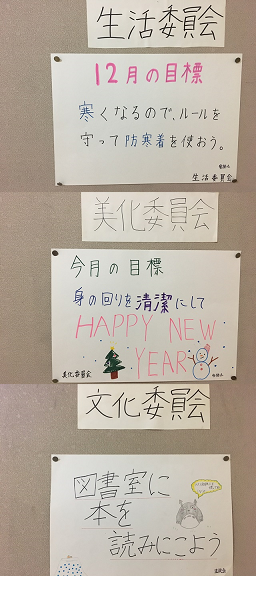 生活委員会
12月の目標
寒くなるので、ルールを
守って防寒着を使おう。
生活委員会
美化委員会
今月の目標
身の回りを清潔にして
HAPPY NEW
YEAR
美化委員会
文化委員会
図書室に
本を
読みにこよう